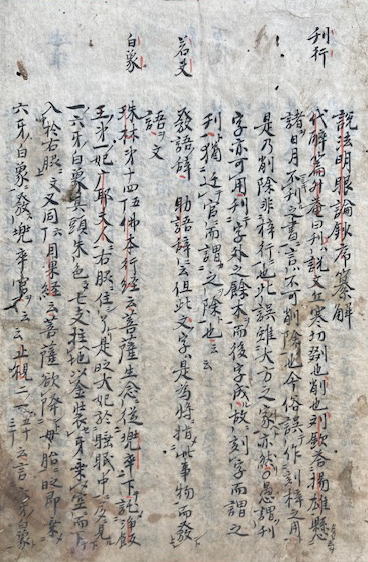 説法明眼論鈔序纂解
刊行
代醉篇 曰刊説文丘寒切剟也削也列歆荅揚雄懸
諸日月不刊之書言不可削除也今俗誤作刊梓之用
是乃削除非梓行也此誤雖大方之家亦然愚謂刊
字亦可用刊字外之餘木而後字成故刻字而謂之
刊猶近官而謂之除也云云
若夫
發語辞助語辞云但此文字是為将指此事物而發
語文
白象
珠林第十四五佛本行經云菩薩生念從兜率下託浄飯
王第一妃广耶夫人右脇住了是时大妃於睡眠中夢見
一六牙白象其頭朱色七支拄地以金装牙乗空而下
入於右脇文又同六月果經云菩薩欲降母胎时即乗
六牙白象發兜率宮云云止観二 云言六牙白象